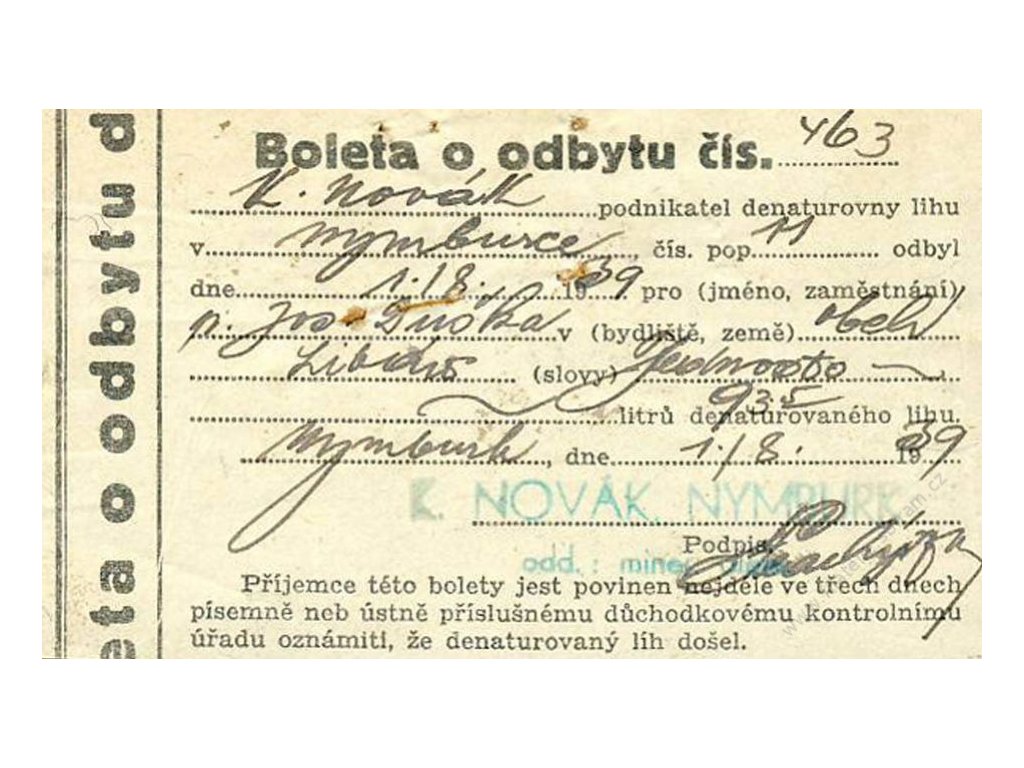 Boleta o odbytu čís. 463
K. Novák podnikatel denaturovny lihu
v Nymburce, čís. pop 11 odbyl
dne 1./8. 1939 pro (jméno, zaměstnání)
p. Jos. Duška v (bydliště, země) obch
(slovy) Jednosto
93.5
litrů denaturovaného lihu.
Nymburk, dne 1./8. 1939
K. NOVÁK, NYMBURK
Podpis.
odd. : miner.
Příjemce této bolety jest povinen nejdéle ve třech dnech
písemně neb ústně příslušnému důchodkovému kontrolnímu
úřadu oznámiti, že denaturovaný líh došel.
eta o odbytu d